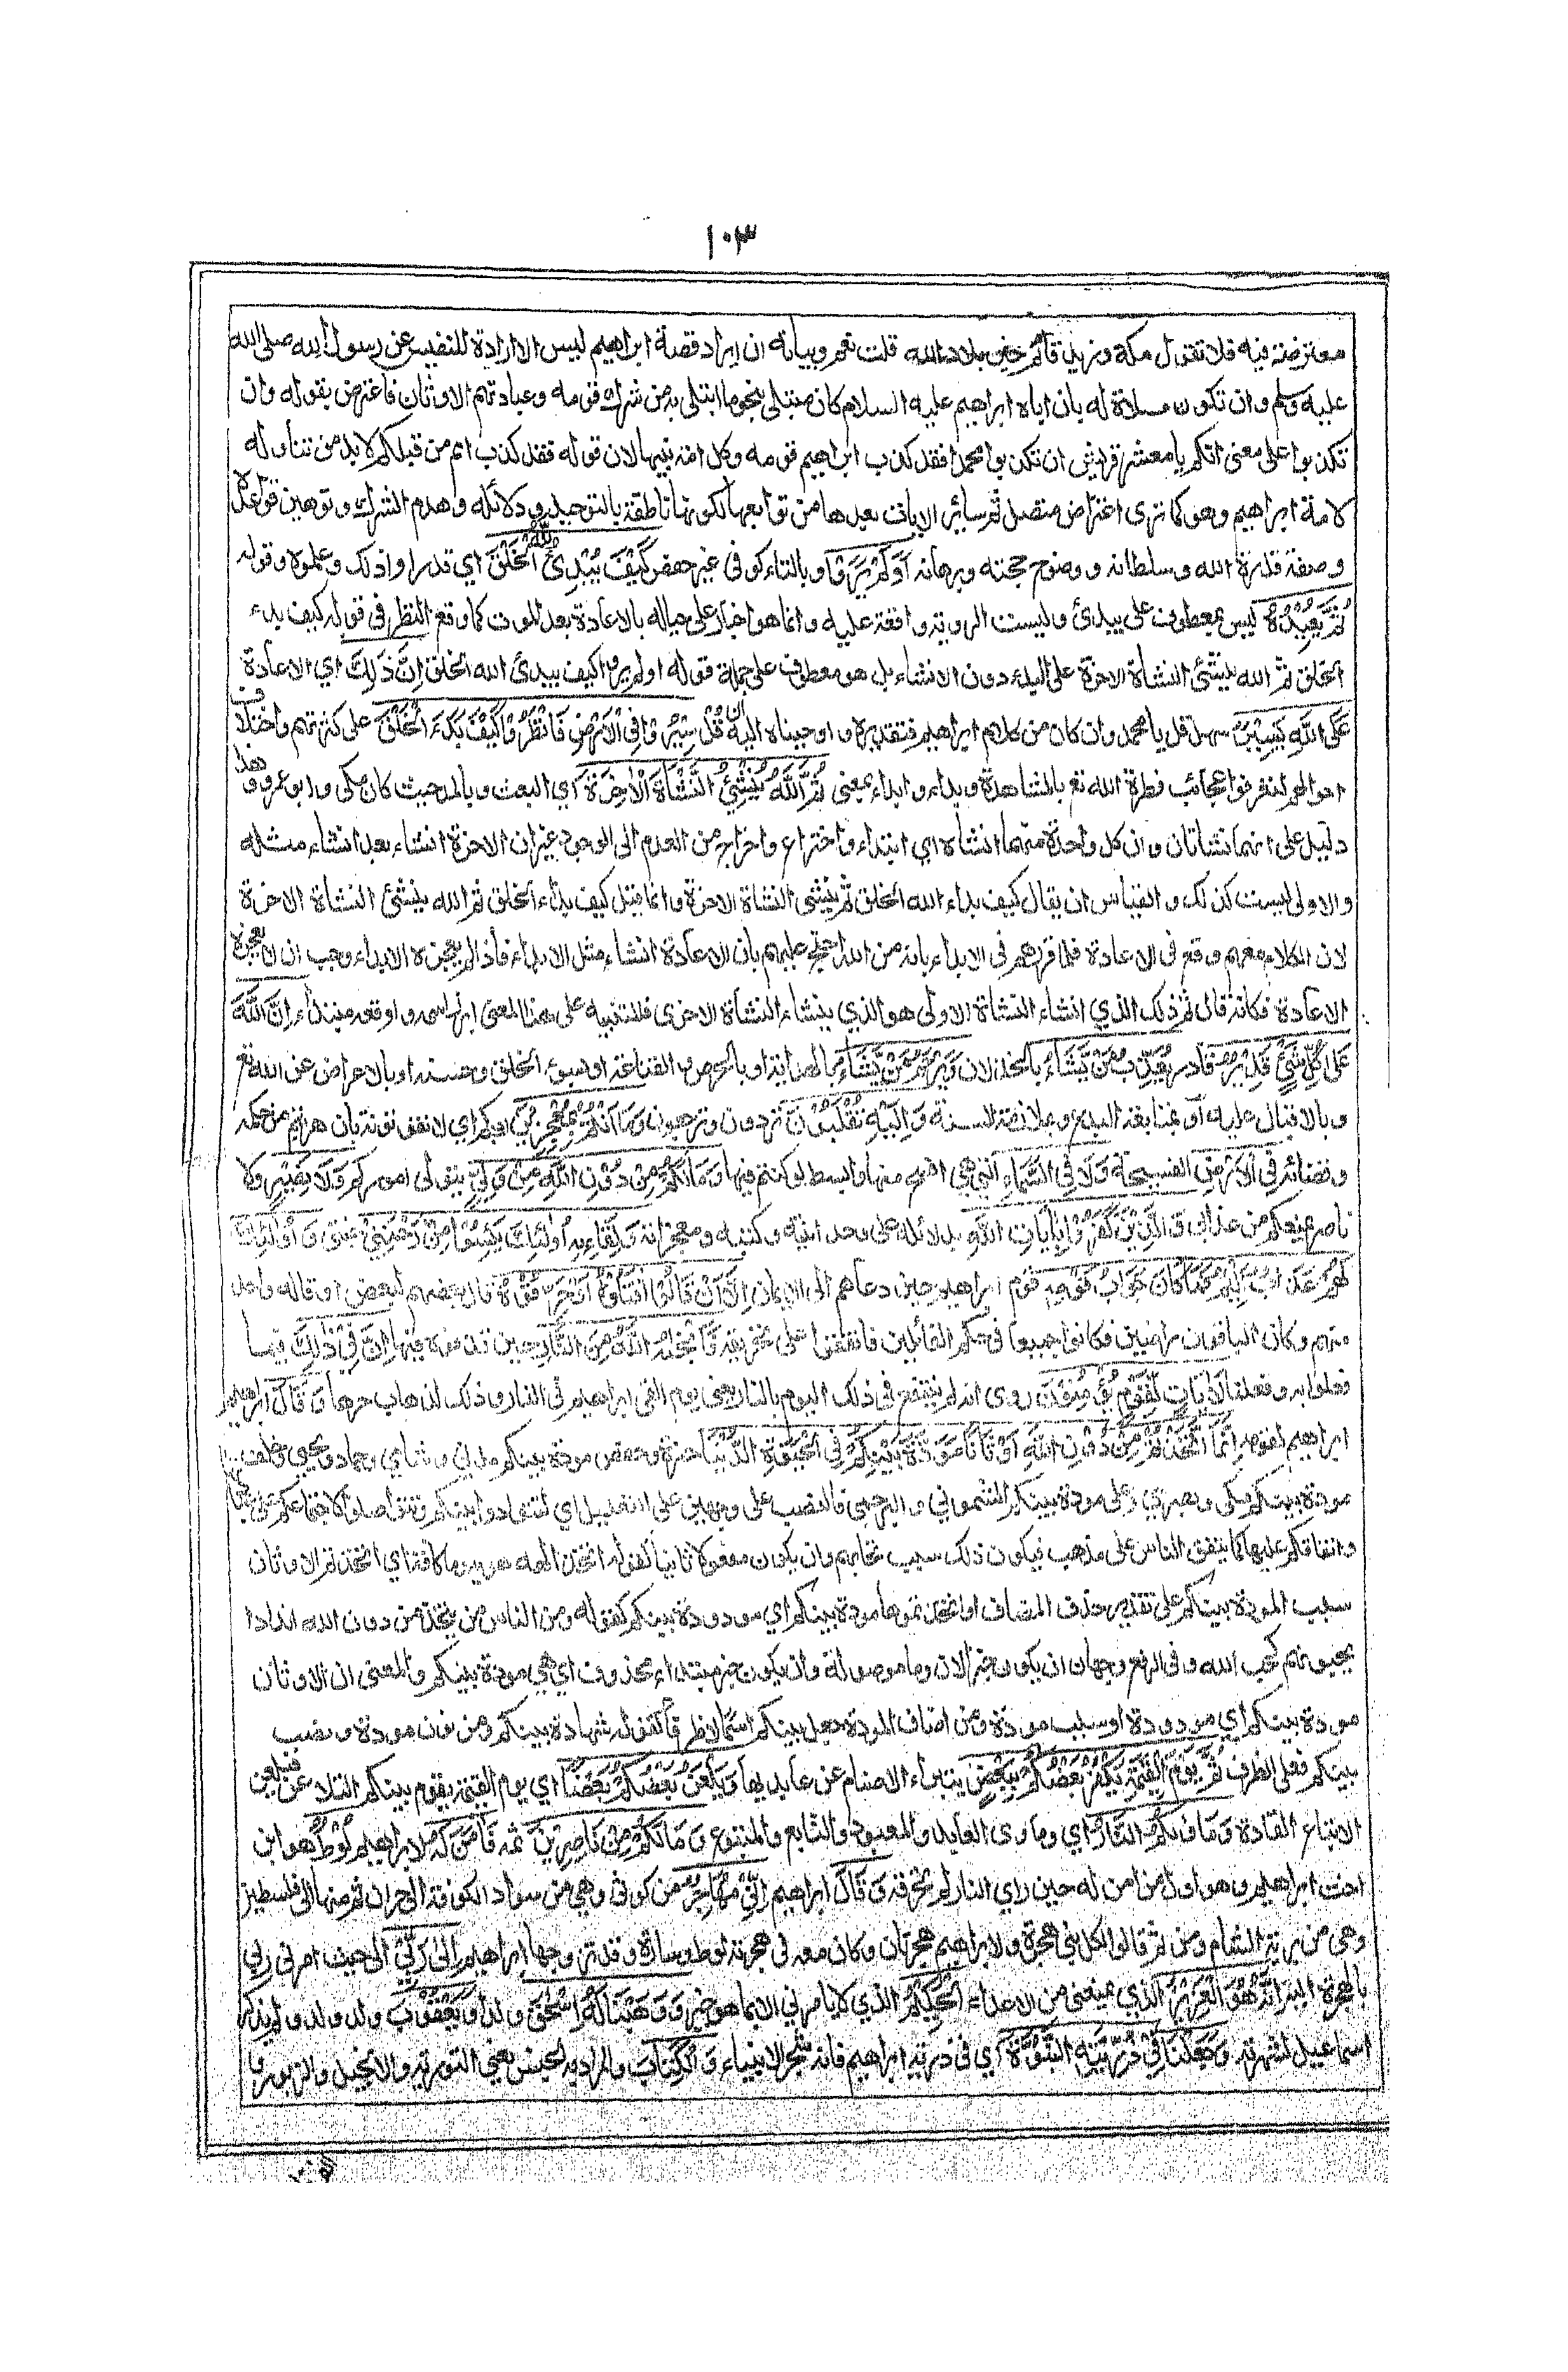 ١٠٣
معترضة فيه فلا تقول مكة وزيد قائم خير بلاد الله قلت نعم وبيانه ان ايراد قصة ابراهيم ليس الا ارادة للتنفيس عن رسول الله صلى الله
عليه وسلم وان تكون مسلاة له بان اباه ابراهيم عليه السلام كان مبتلى بنحو ما ابتلي به من شرك قومه وعبادتهم الاوثان فاعترض بقوله وان
تكذبوا على معنى انكم يا معشر قريش ان تكذبوا محمدا فقد كذب ابراهيم قومه وكل امة نبيها لان قوله فقد كذب امم من قبلكم لا بد من تناوله
لامة ابراهيم وهو كما ترى اعتراض متصل ثم سائر الايات بعدها من توابعها لكونها ناطقة بالتوحيد ودلائله وهدم الشرك وتوهين قواعده
وصفة قدرة الله وسلطانه ووضوح حجته وبرهانه اَوَلَمْ يَرَوْا وبالتاء كوفي غير حفص كَيْفَ يُبْدِئُ اللّٰهُ الْخَلْقَ اي قد راوا ذلك وعلموه وقوله
ثُمَّ يُعِيْدُهُ ليس بمعطوف على يبدئ وليست الروية واقعة عليه وانما هو اخبار على حياله بالاعادة بعد الموت كما وقع النظر في قوله كيف بدء
الخلق ثم الله ينشئ النشاة الاخرة على البدء دون الانشاء بل هو معطوف على جملة قوله اولم يروا كيف يبدئ الله الخلق اِنَّ ذٰلِكَ اي الاعادة
عَلَى اللّٰهِ يَسِيْرٌ سهل قل يا محمد وان كان من كلام ابراهيم فتقديره واوحينا اليه ان قُلْ سِيْرُوْا فِي الْاَرْضِ فَانْظُرُوْا كَيْفَ بَدَءَ الْخَلْقَ على كثرتهم واختلاف
احوالهم لتعرفوا عجائب فطرة الله تع بالمشاهدة وبدء وابدء بمعنى ثُمَّ اللّٰهُ يُنْشِئُ النَّشْاَةَ الْاٰخِرَةَ اي البعث وبالمد حيث كان مكي وابو عمرو وهذا
دليل على انهما نشاتان وان كل واحدة منهما انشاء اي ابتداء واختراع واخراج من العدم الى الوجود غير ان الاخرة انشاء بعد انشاء مثله
والاولى ليست كذلك والقياس ان يقال كيف بداء الله الخلق ثم ينشئ النشاة الاخرة وانما قيل كيف بدء الخلق ثم الله ينشئ النشاة الاخرة
لان الكلام معهم وقع في الاعادة فلما قررهم في الابداء بانه من الله احتج عليهم بان الاعادة انشاء مثل الابداء فاذا لم يعجزه الابداء وجب ان لا يعجزه
الاعادة فكانه قال ثم ذلك الذي انشاء النشاة الاولى هو الذي ينشاء النشاة الاخرى فللتنبيه على هذا المعنى ابرز اسمه واوقعه مبتداء اِنَّ اللّٰهَ
عَلٰى كُلِّ شَيْءٍ قَدِيْرٌ قادر يُعَذِّبُ مَنْ يَّشَاءُ بالخذلان وَيَرْحَمُ مَنْ يَّشَاءُ بالهداية او بالحرص والقناعة او بسوء الخلق وحسنه او بالاعراض عن الله تع
وبالاقبال عليه او بمتابعة البدع وبملازمة السنة وَاِلَيْهِ تُقْلَبُوْنَ تردون وترجعون وَمَا اَنْتُمْ بِمُعْجِزِيْنَ ربكم اي لا تفوتونه بان هربتم من حكمه
وقضائه فِي الْاَرْضِ الفسيحة وَلَا فِي السَّمَاءِ التي هي افسح منها وابسط لو كنتم فيها وَمَا لَكُمْ مِنْ دُوْنِ اللّٰهِ مِنْ وَّلِيٍّ يتولى اموركم وَلَا نَصِيْرٍ ولا
ناصر يمنعكم من عذابي وَالَّذِيْنَ كَفَرُوْا بِاٰيَاتِ اللّٰهِ بدلائله على وحدانيته وكتبه ومعجزاته وَلِقَاءِهٖ اُولٰئِكَ يَئِسُوْا مِنْ رَّحْمَتِيْ جنتي وَاُولٰئِكَ
لَهُمْ عَذَابٌ اَلِيْمٌ فَمَا كَانَ جَوَابَ قَوْمِهٖ قوم ابراهيم حين دعاهم الى الايمان اِلَّا اَنْ قَالُوا اقْتُلُوْهُ اَوْ حَرِّقُوْهُ قال بعضهم لبعض او قاله واحد
منهم وكان الباقون راضين فكانوا جميعا في حكم القائلين فاتفقوا على تحريقه فَاَنْجٰىهُ اللّٰهُ مِنَ النَّارِ حين قذفوه فيها اِنَّ فِيْ ذٰلِكَ فيما
فعلوا به وفعلنا لَاٰيَاتٍ لِّقَوْمٍ يُّؤْمِنُوْنَ روى انه لم ينتفع في ذلك اليوم بالنار يعني يوم القي ابراهيم في النار وذلك لذهاب حرها وَقَالَ ابراهيم
ابراهيم لقومه اِنَّمَا اتَّخَذْتُمْ مِنْ دُوْنِ اللّٰهِ اَوْثَانًا مَّوَدَّةَ بَيْنِكُمْ فِي الْحَيٰوةِ الدُّنْيَا حمزة وحفص مودة بينكم مدني وشامي وحماد ويحيى وخلف
مودة بينكم مكي وبصري وعلي مودة بينكم الشموني والبرجمي فالنصب على وجهين على التعليل اي لتتوادوا بينكم وتتواصلوا لاجتماعكم على عبادتها
واتفاقكم عليها كما يتفق الناس على مذهب فيكون ذلك سبب تحابهم وان يكون مفعولا ثانيا كقوله اتخذ الهه هويه وما كافة اي اتخذتم الاوثان
سبب المودة بينكم على تقدير حذف المضاف او اتخذتموها مودة بينكم اي مودودة بينكم كقوله ومن الناس من يتخذ من دون الله اندادا
يحبونهم كحب الله وفي الرفع وجهان ان يكون خبرا لان وما موصولة وان يكون خبر مبتداء محذوف اي هي مودة بينكم والمعنى ان الاوثان
مودة بينكم اي مودودة او سبب مودة ومن اضاف المودة جعل بينكم اسما لا ظرفا كقوله شهادة بينكم ومن نون مودة ونصب
بينكم فعلى الظرف ثُمَّ يَوْمَ الْقِيٰمَةِ يَكْفُرُ بَعْضُكُمْ بِبَعْضٍ يتبراء الاصنام عن عابديها وَيَلْعَنُ بَعْضُكُمْ بَعْضًا اي يوم القيمة يقوم بينكم التلاعن فيلعن
الاتباع القادة وَمَاْوٰىكُمُ النَّارُ اي وماوى العابد والمعبود والتابع والمتبوع وَمَا لَكُمْ مِنْ نَّاصِرِيْنَ ثمه فَاٰمَنَ لَهٗ لابراهيم لُوْطٌ هو ابن
اخت ابراهيم وهو اول من امن له حين راي النار لم تحرقه وَقَالَ ابراهيم اِنِّيْ مُهَاجِرٌ من كوثى وهي من سواد الكوفة الى حران ثم منها الى فلسطين
وهي من برية الشام ومن ثم قالوا لكل نبي هجرة ولابراهيم هجرتان وكان معه في هجرته لوط وسارة وقد تزوجها ابراهيم اِلٰى رَبِّيْ الى حيث امرني ربي
بالهجرة اليه اِنَّهٗ هُوَ الْعَزِيْزُ الذي يمنعني من الاعداء الْحَكِيْمُ الذي لا يامرني الا بما هو خير وَوَهَبْنَا لَهٗ اِسْحٰقَ ولدا وَيَعْقُوْبَ ولد ولد ولم يذكر
اسماعيل لشهرته وَجَعَلْنَا فِيْ ذُرِّيَّتِهِ النُّبُوَّةَ اي في ذرية ابراهيم فانه شجر الانبياء وَالْكِتَابَ والمراد به الجنس يعني التورية والانجيل والزبور و